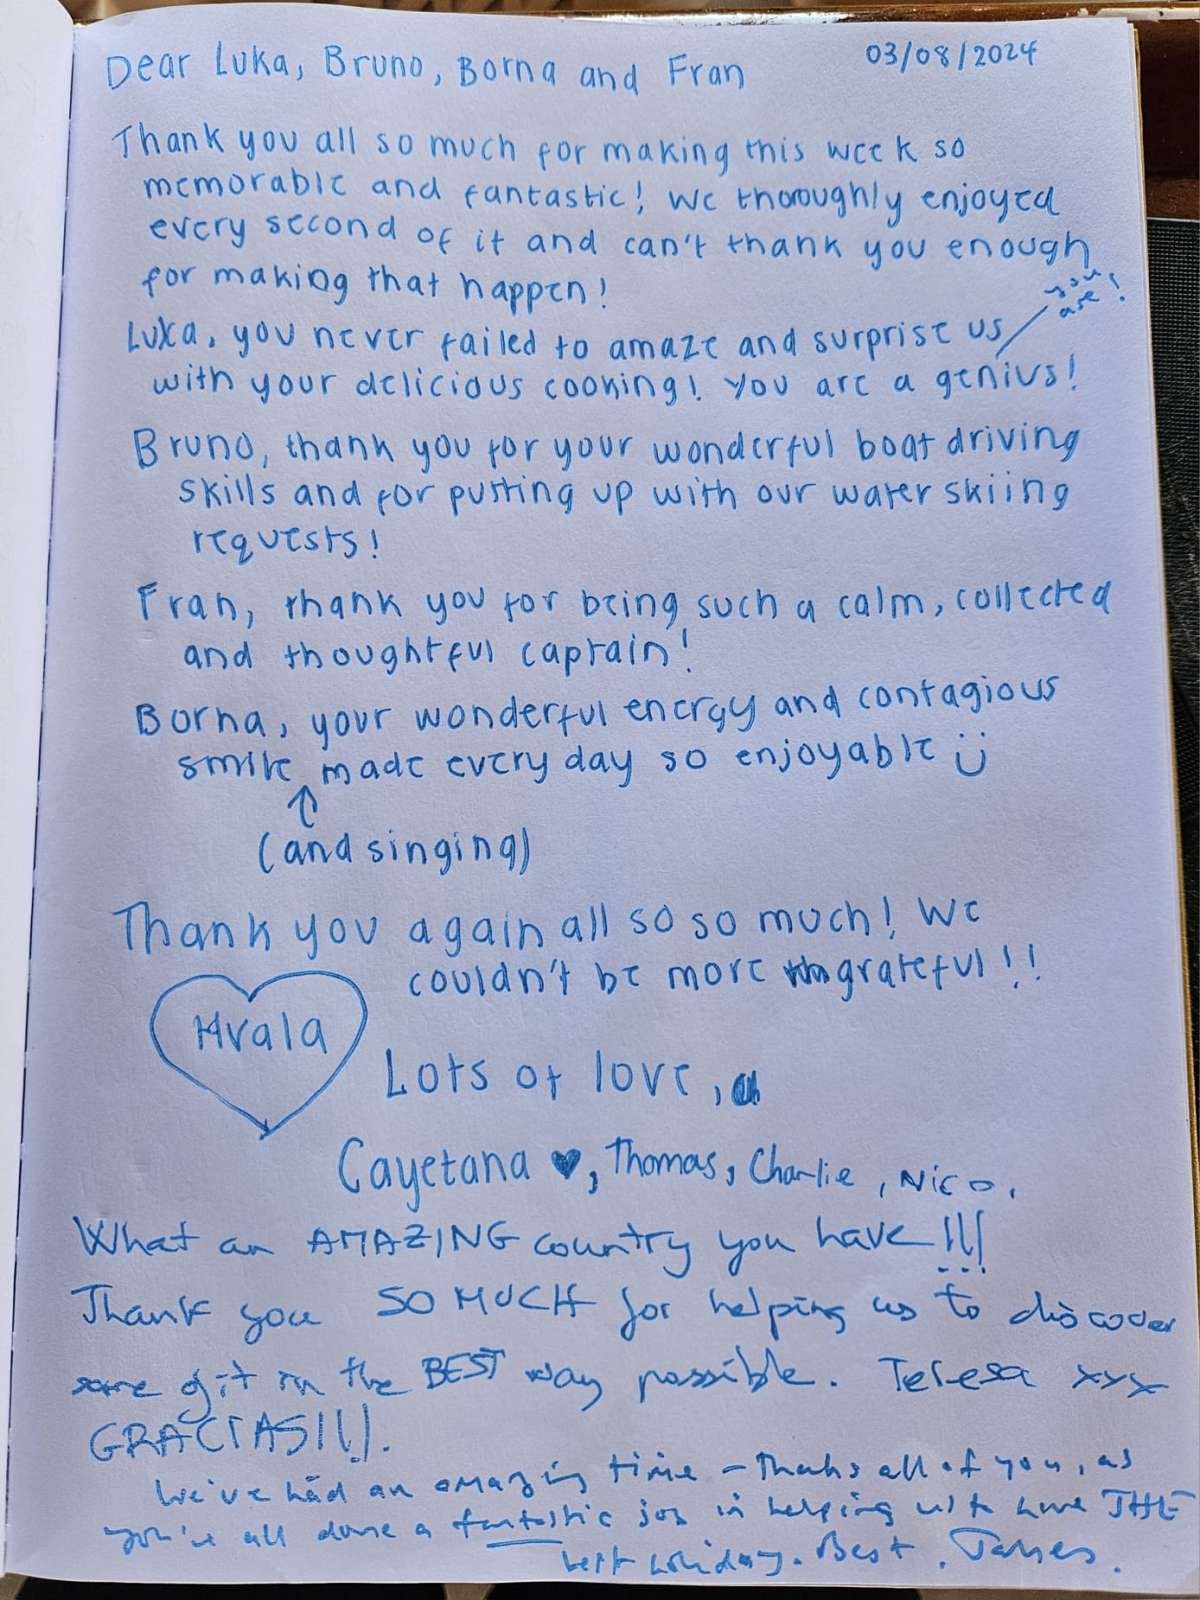 Dear Luka, Bruno, Borna and Fran
03/08/2024
Thank you all so much for making this week so
memorable and fantastic! We thoroughly enjoyed
every second of it and can't thank you enough
for making that happen!
you
are!
Luka, you never failed to amaze and surprise us
with your delicious cooking! You are a genius!
Bruno, thank you for your wonderful boat driving
skills and for putting up with our water skiing
requests!
Fran, thank you for being such a calm, collected
and thoughtful captain!
Borna, your wonderful energy and contagious
smile made every day so enjoyable
(and singing)
Thank you again all so so much! We
couldn't be more grateful!!
Hvala
Lots of love,
Cayetana ♥, Thomas, Charlie, Nico.
What an AMAZING country you have!!!
Thank you SO MUCH for helping us to discover
some of it in the BEST way possible. Teresa xxx
GRACIAS!!!.
We've had an amazing time - Thanks all of you, as
you've all done a fantastic job in helping us to have THE
best holiday. Best, James.